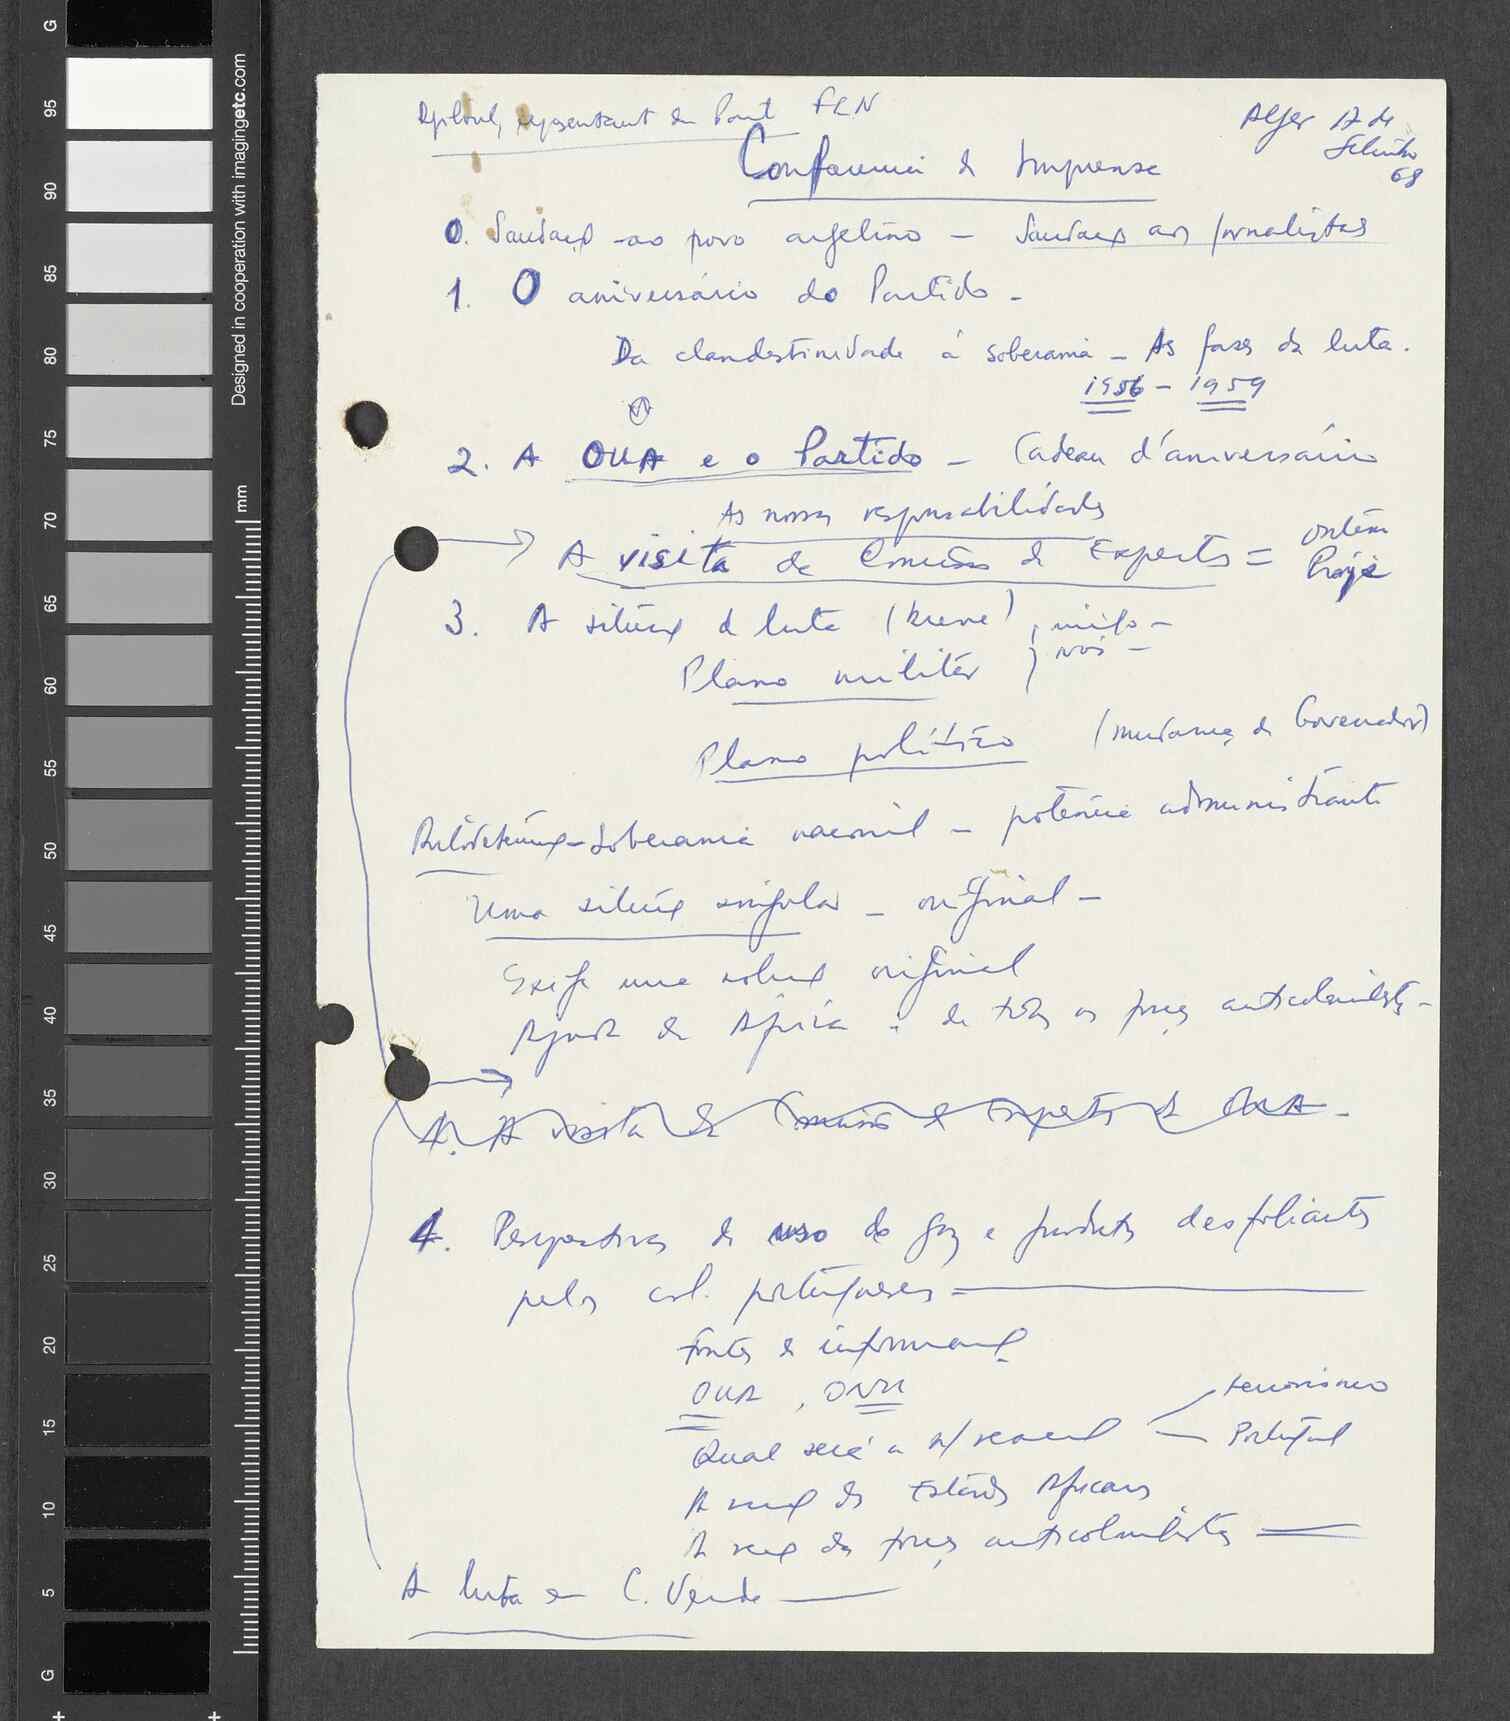 représentant du Parti FLN
Alger 17 de
68
Conferencia de Imprensa
0. Saudaçº ao povo argelino – Saudaçº aos jornalistas
1. O aniversário do Partido –
Da clandestinidade à soberania – As fases da luta.
1956 – 1959
2. A OUA e o Partido – Cadeau d'aniversário
As nossas responsabilidades
A visita da Comissão de Experts =
3. A situaçº da luta (breve)
nós –
Plano militar
Plano político (mudança de Governador)
Autodetermº – Soberania nacional – potência administrante
Uma situaçº singular – original –
Exige uma soluçº original
Ajuda da África e de todas as forças anticolonialistas –
4. A visita da Comissão de Experts da OUA –
4. Perspectivas de uso de gaz e produtos desfoliantes
pelos col. portugueses
Fontes de informaçº
OUA, ONU
Qual será a n/ reacçº
terrorismo
Portugal
A reacçº dos Estados Africanos
A reacçº das forças anticolonialistas
A luta em C. Verde
G
95
90
85
80
75
70
65
60
55
50
45
40
35
30
25
20
15
10
5
G
mm
Designed in cooperation with imagingetc.com